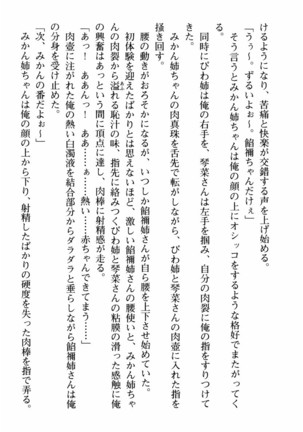 けるようになり、苦痛と快楽が交錯する声を上げ始める。
「うぅ〜。ずるいよぉ〜。餡禰ちゃんだけぇ」
そう言うとみかん姉ちゃんは俺の顔の上にオシッコをするような格好でまたがってく
る。
同時にびわ姉は俺の右手を、琴菜さんは左手を掴み、自分の肉裂に俺の指をすりつけて
きた。
みかん姉ちゃんの肉真珠を舌先で転がしながら、びわ姉と琴菜さんの肉壺に入れた指を
掻き回す。
腰の動きがおろそかになるが、いつしか餡禰姉さんが自ら腰を上下させ始めていた。
初体験を迎えたばかりとは思えないほど、激しい餡禰姉さんの腰使いと、みかん姉ちゃ
んの肉裂から溢れる恥汁の味、指先に絡みつくびわ姉と琴菜さんの粘膜の滑った感触に俺
の興奮はあっという間に頂点に達し、肉棒に射精感が走る。
「あっ！　ああんっ！　あぁぁ……熱い……赤ちゃんできてまう……」
肉壺に注がれた俺の熱い白濁液を結合部分からダラダラと垂らしながら餡禰姉さんは俺
の分身を受け止めた。
「次、みかんの番だよぉ〜」
みかん姉ちゃんは俺の顔の上から下り、射精したばかりの硬度を失った肉棒を指で弄る。